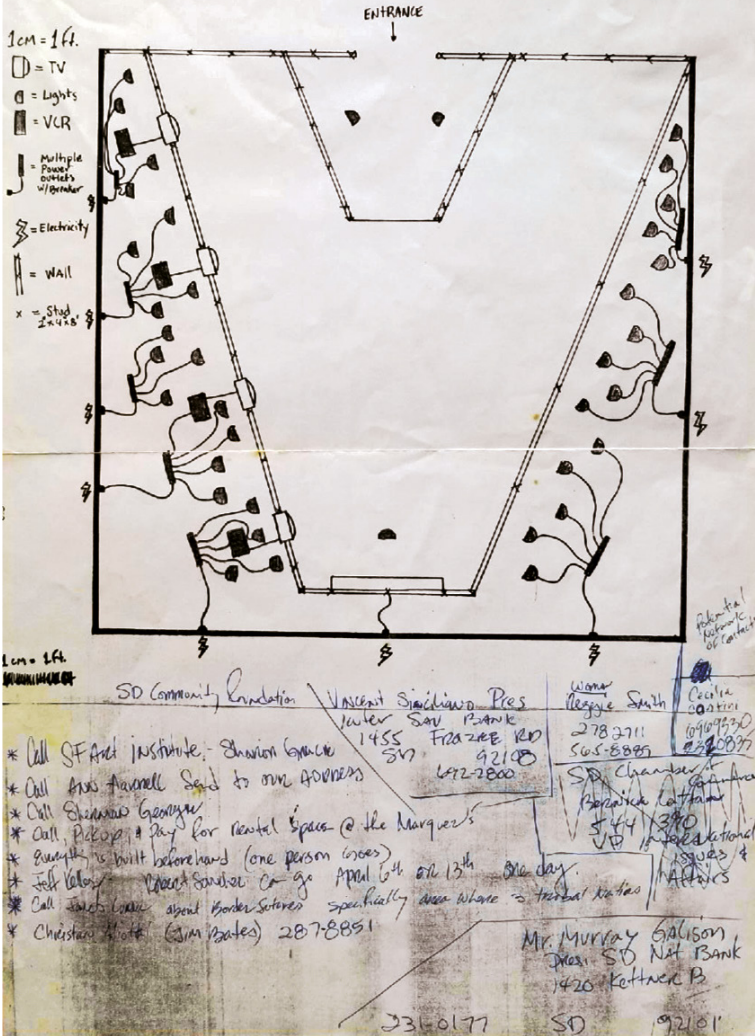 ENTRANCE
1cm = 1ft.
= TV
= Lights
= VCR
= Multiple
Power
outlets
w/Breaker
= Electricity
= WALL
x = Stud
2"x4"x8'
1cm = 1ft.
Potential
Network
of Contacts
SD Community Foundation
Vincent Siciliano Pres
Inter SAV BANK
1455 FRAZEE RD
SD 92108
692-2800
Reggie Smith
278 2711
565-8889
Cecilia
SD Chamber of
Bernice
544
International
issues &
Affairs
* Call SF Art institute - Sharon
* Call Ann Send to our ADDRESS
* Call Sherman George
* Call, Pickup, & Pay for rental space @ the Marquez's
* Everything is built beforehand (one person goes)
* Jeff Kelley Robert Sanchez can go April 6th or 13th one day.
* Call about Border Sutures specifically area where is tribal Nation
* Christian (Jim Bates) 287-8851
Mr. Murray Galison,
Pres. SD Nat BANK
1420 Kettner B
231-0177 SD 92101